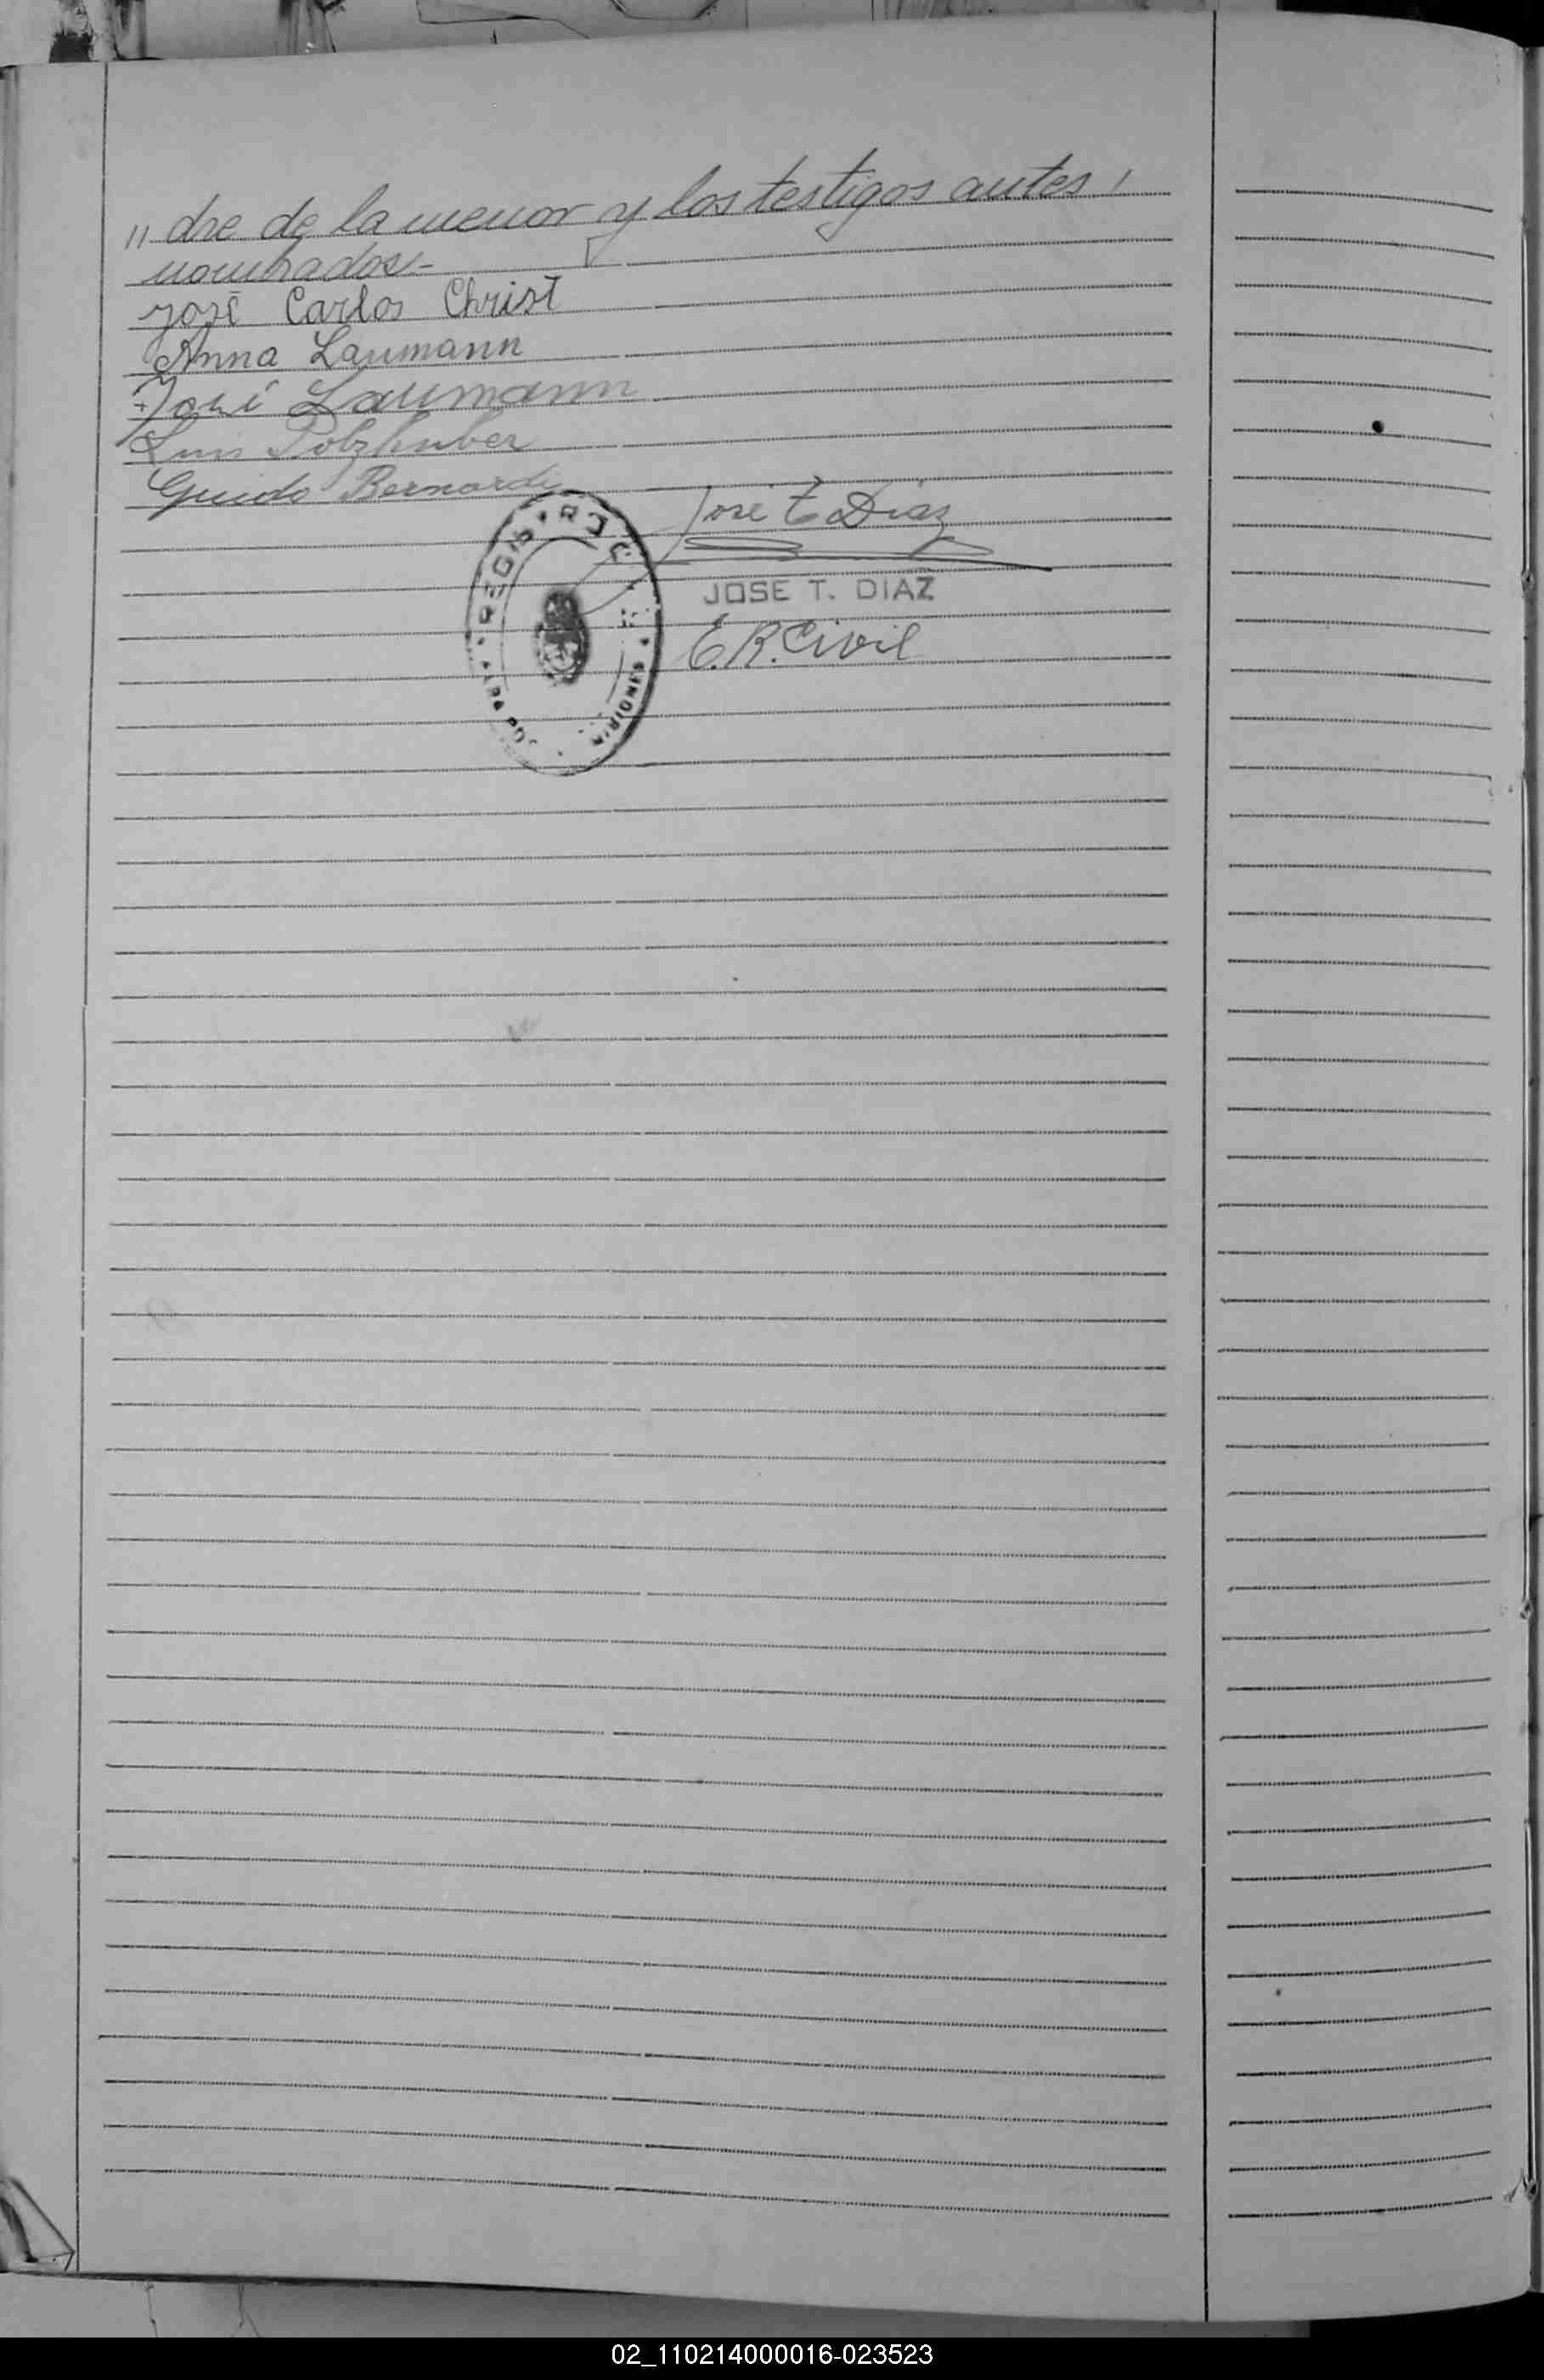 " dre de la menor y los testigos antes /
nombrados.-
José Carlos Christ
Anna Laumann
José Laumann
Luis Polzhuber
Guido Bernardi
José T Diaz
JOSE T. DIAZ
E. R. Civil
REGISTRO CIVIL
MISIONES
02_110214000016-023523